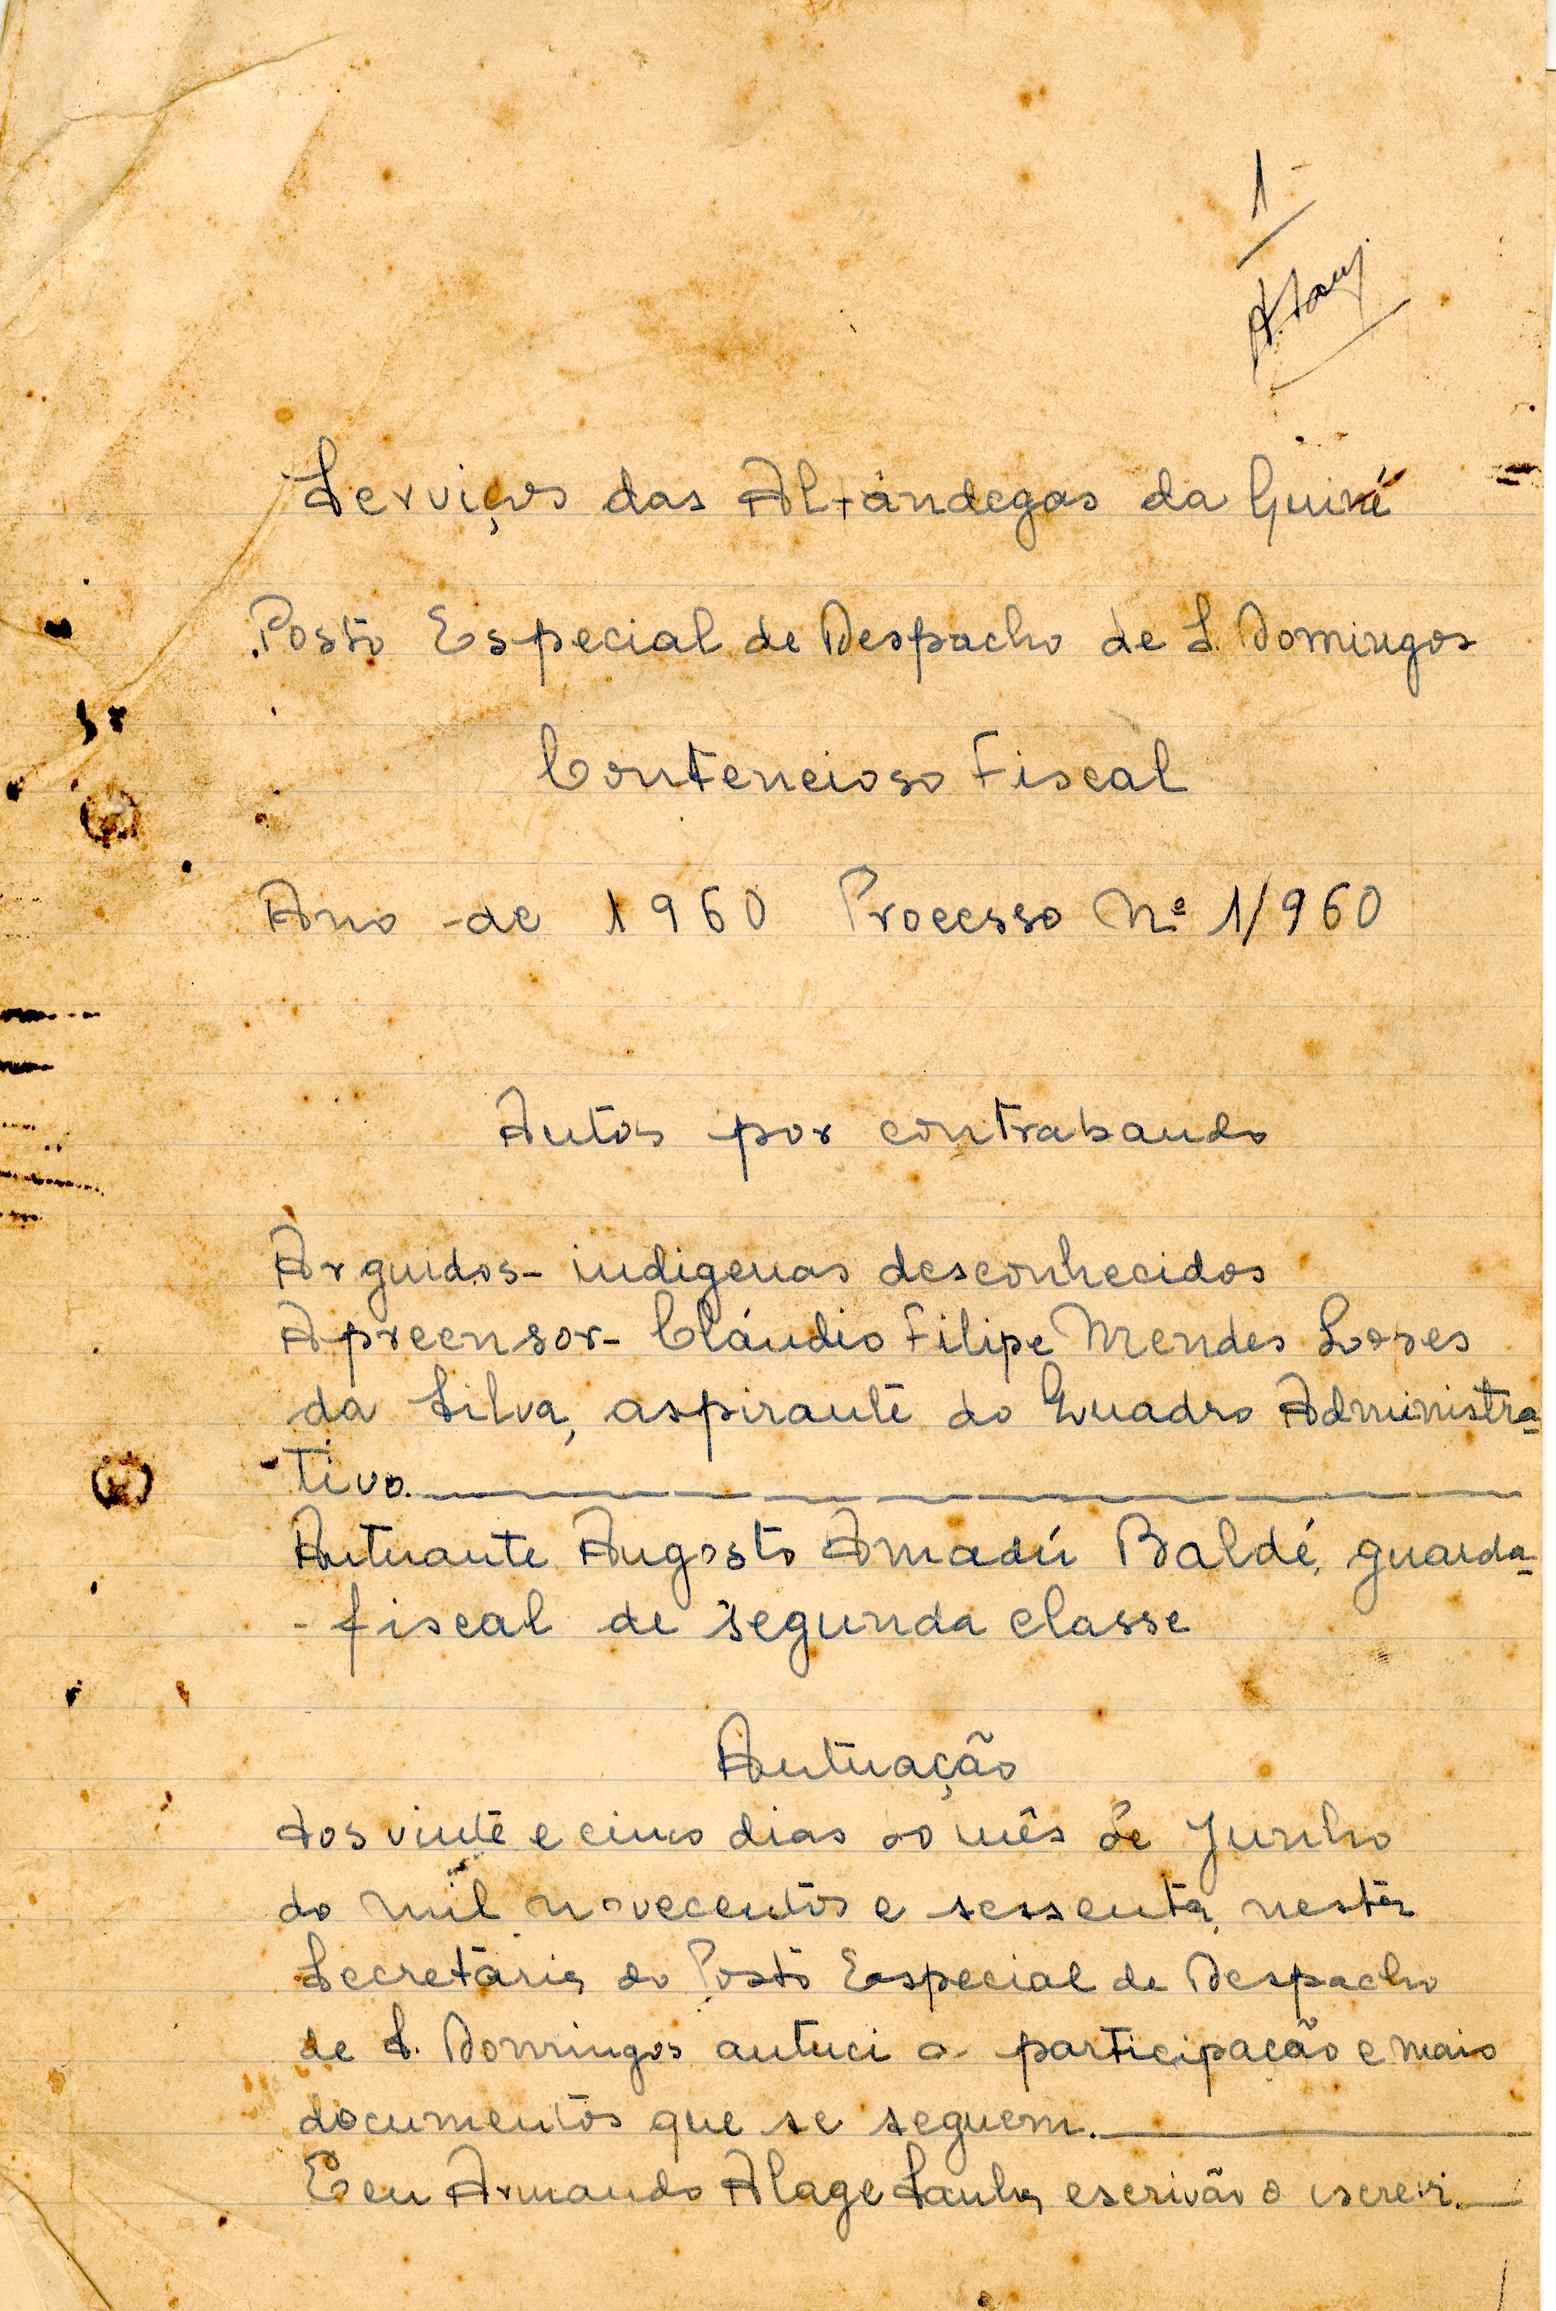 1
Serviços das Alfândegas da Guiné
Posto Especial de Despacho de S. Domingos
Contencioso Fiscal
Ano de 1960 Processo Nº 1/960
Autos por contrabando
Arguidos- indigenas desconhecidos
Apreensor- Cláudio Filipe Mendes Lopes
da Silva, aspirante do Quadro Administra-
tivo.
Autuante Augosto Amadú Baldé, guarda-
-fiscal de segunda classe
Autuação
Aos vinte e cinco dias do mês de Junho
do mil novecentos e sessenta, nesta
Secretária do Posto Especial de Despacho
de S. Domingos autuei a participação e mais
documentos que se seguem.
E eu Armando Alage Sanha, escrivão o escrevi.